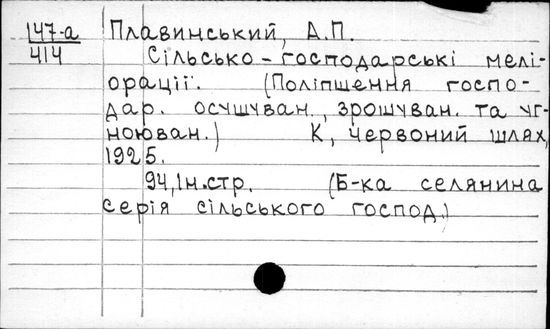 147-а Плавинський, А.П.
414 Сільсько-господарські мелі-
орації. (Поліпшення госпо-
дар. осушуван., зрошуван. та уг-
ноюван.) К, Червоний шлях,
1925.
94,1н.стр. (Б-ка селянина
серія сільського господ.)